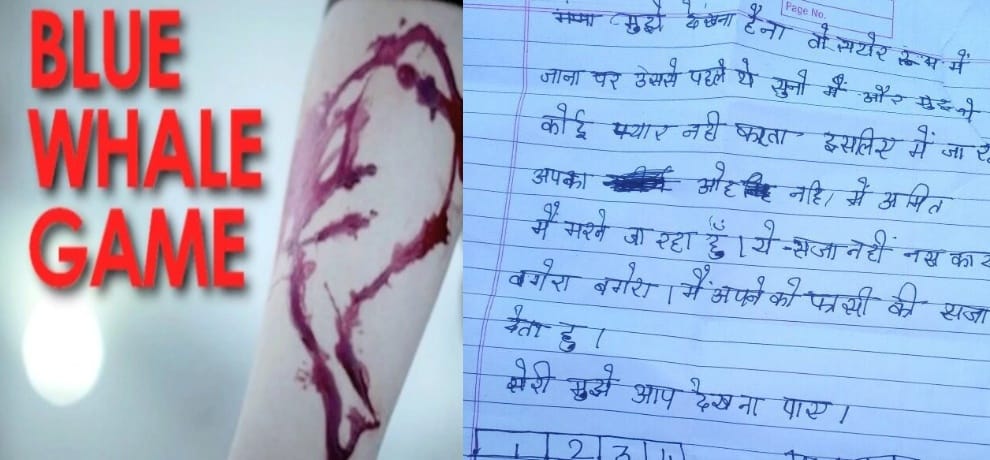 BLUE
WHALE
GAME
Page No.
मम्मा मुझे देखना हैना तो स्टोर रूम में
जाना पर उससे पहले ये सुनो मैं और
कोई प्यार नही करता इसलिए में जा
अपका नहि में अमित
मैं मरने जा रहा हूँ। ये सजा नहीं
वगेरा वगेरा। मैं अपने को की सजा
देता हु।
सोरी मुझे आप देख ना पाए।
1 2 3